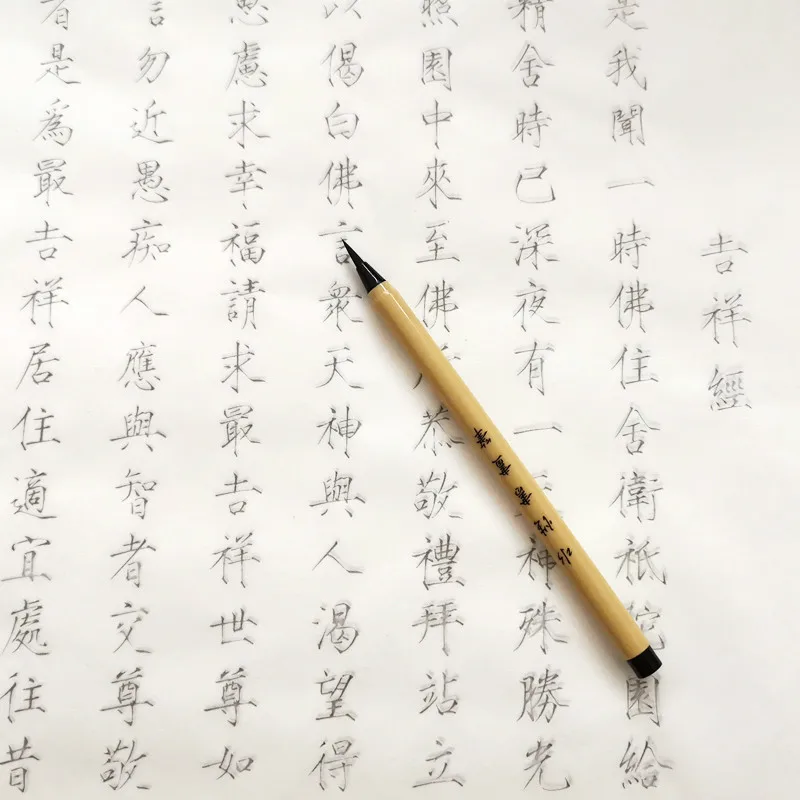 吉祥經
是我聞一時佛住舍衛祇陀園給
精舍時已深夜有一神殊勝光
照園中來至佛恭敬禮拜站立
以偈白佛言眾天神與人渴望得
思慮求幸福請求最吉祥世尊如
言勿近愚痴人應與智者交尊敬
者是爲最吉祥居住適宜處往昔